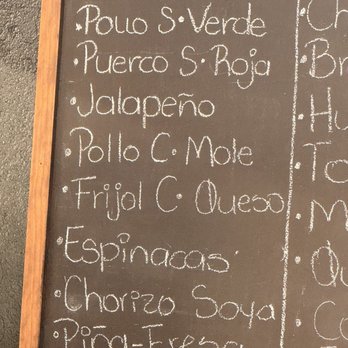 • Pollo S. Verde
• Puerco S. Roja
• Jalapeño
• Pollo C. Mole
• Frijol C. Queso
• Espinacas
• Chorizo Soya
• Piña-Fresa